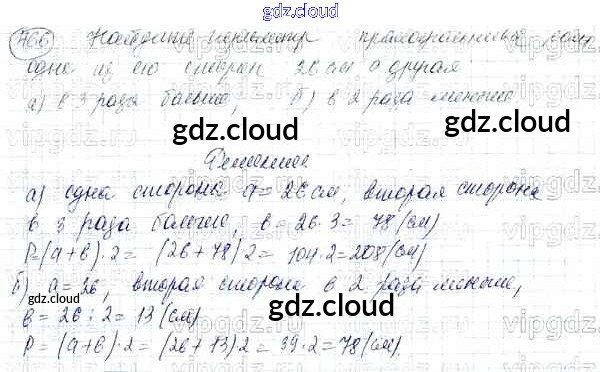 gdz.cloud
766 Найдите периметр прямоугольника, если
одна из его сторон 26 см, а другая
а) в 3 раза больше; б) в 2 раза меньше
gdz.cloud gdz.cloud
Решение
а) одна сторона a = 26 см, вторая сторона
в 3 раза больше, в = 26 · 3 = 78 (см)
P = (a + в) · 2 = (26 + 78) 2 = 104 · 2 = 208 (см)
б) a = 26, вторая сторона в 2 раза меньше,
gdz.cloud gdz.cloud
в = 26 : 2 = 13 (см)
P = (a + в) · 2 = (26 + 13) · 2 = 39 · 2 = 78 (см).